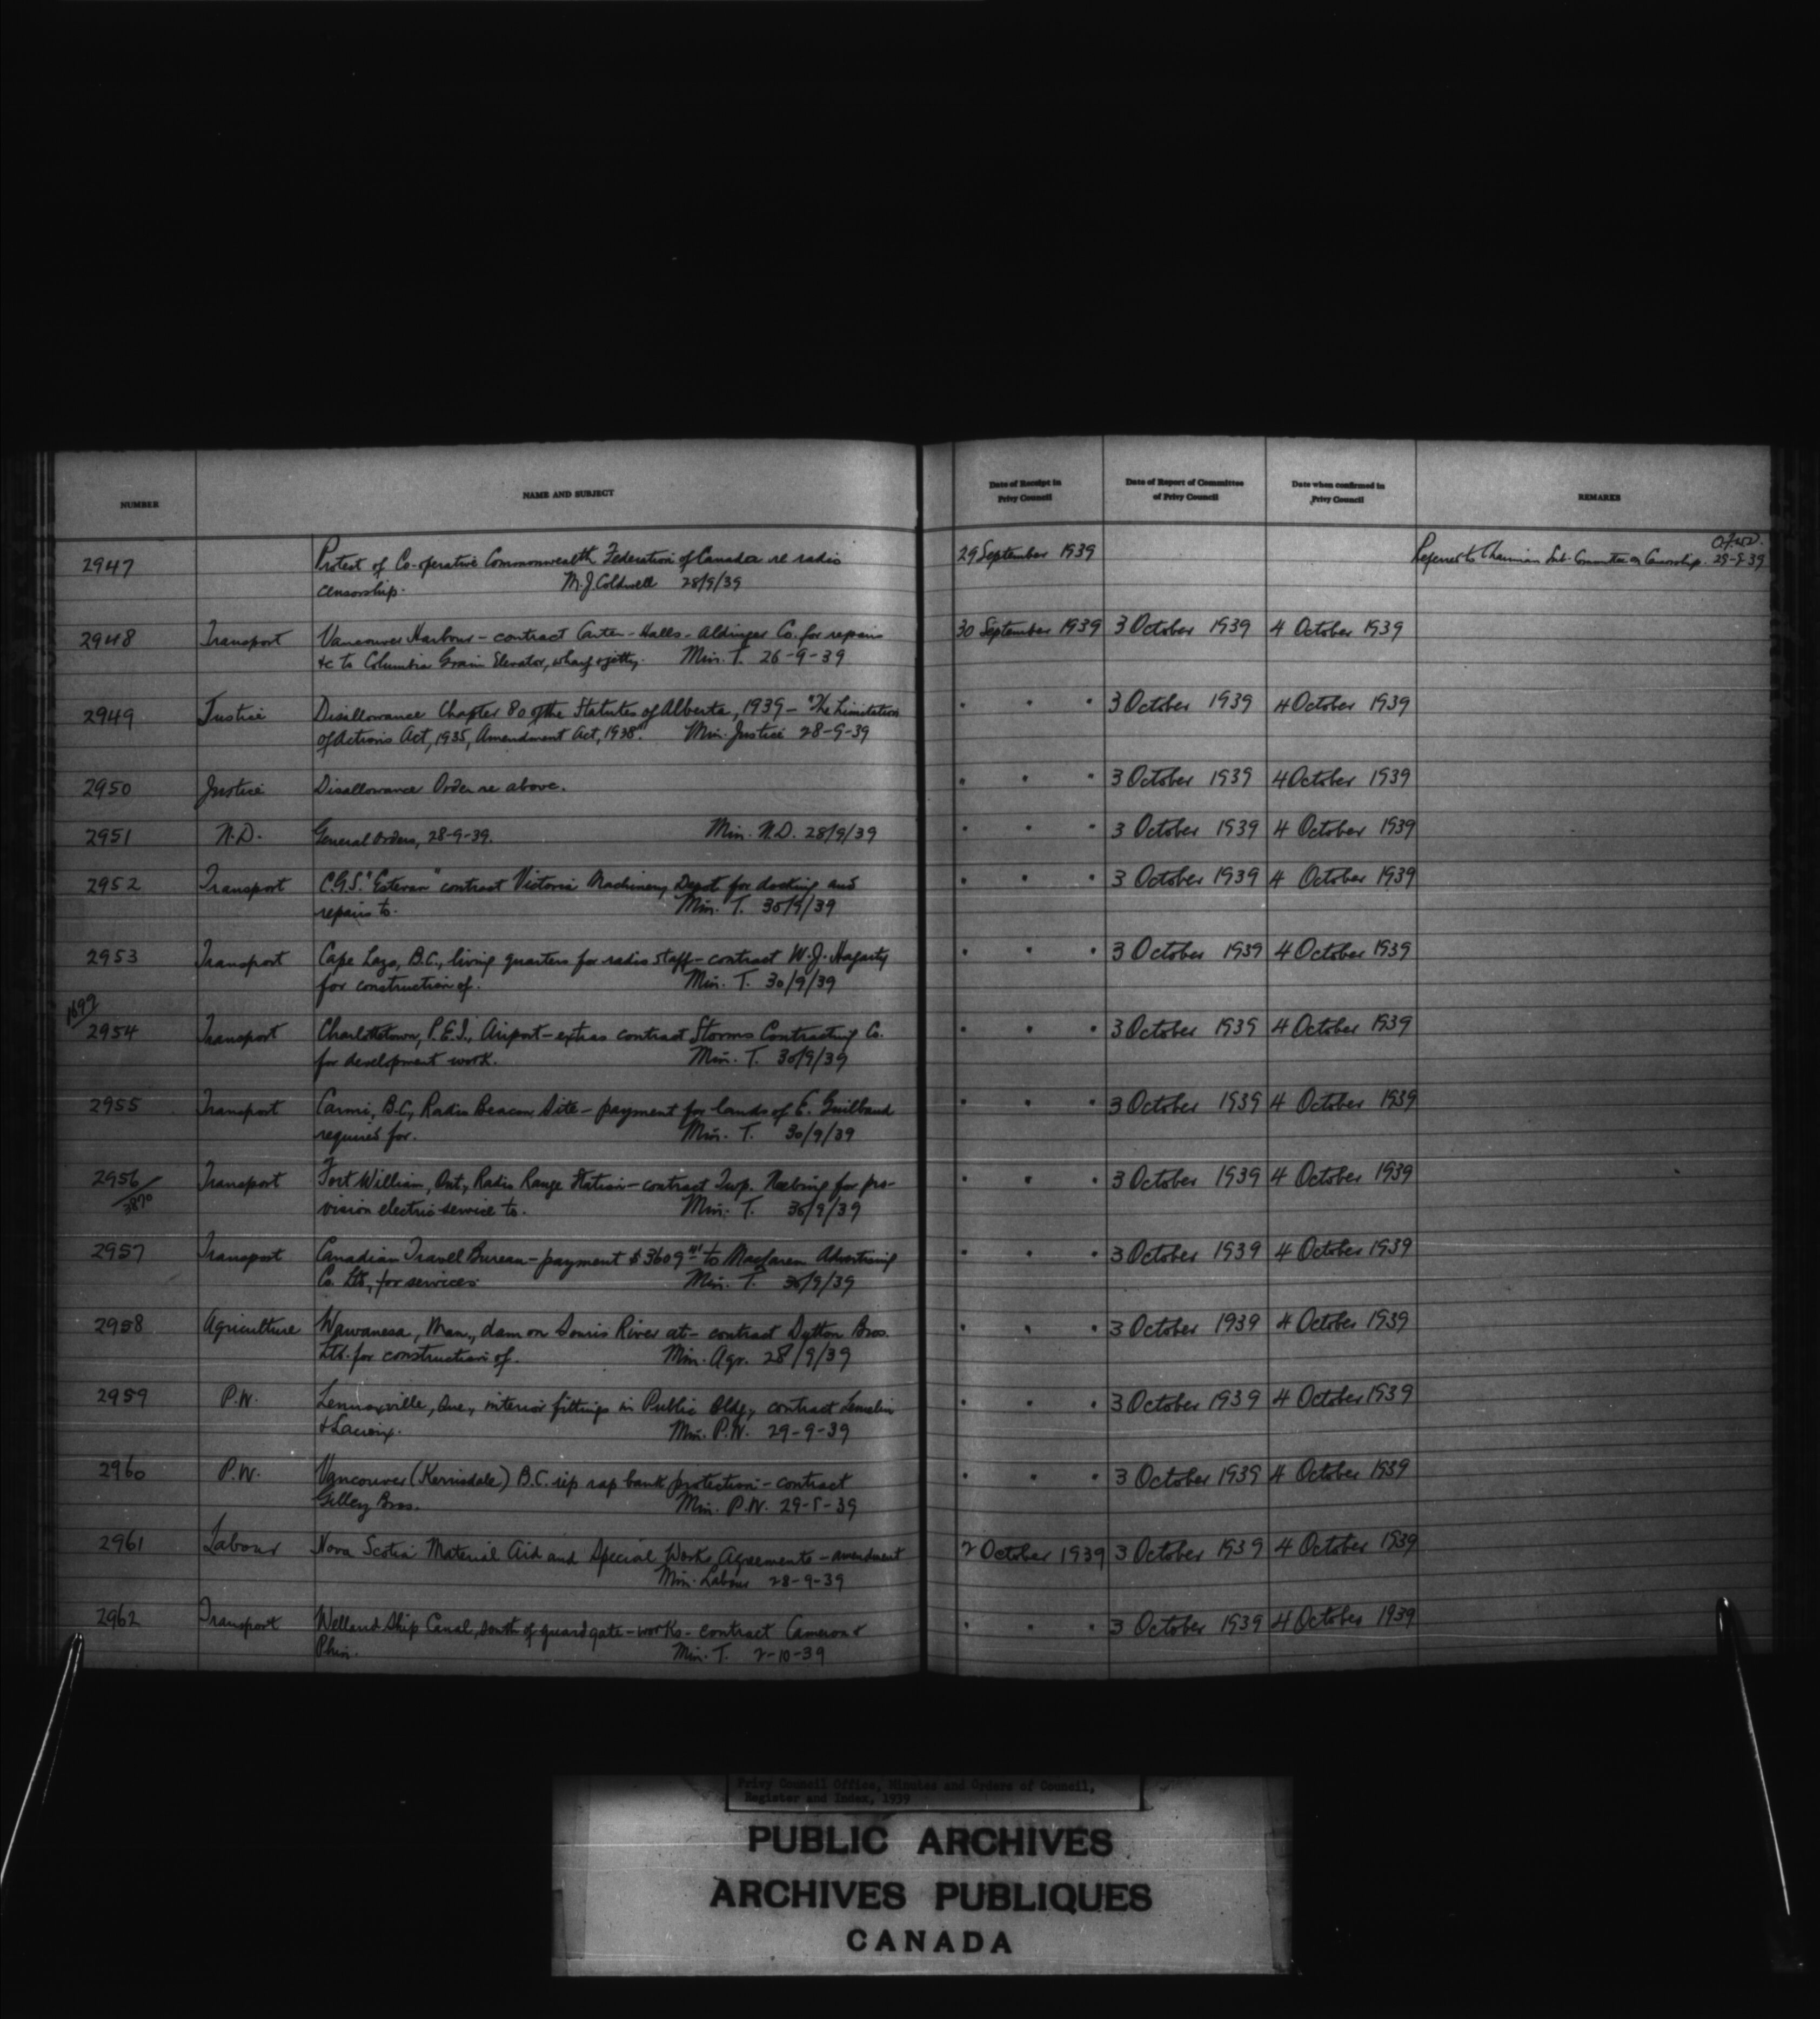 NUMBER NAME AND SUBJECT Date of Receipt in Privy Council Date of Report of Committee of Privy Council Date when confirmed in Privy Council REMARKS
2947 Protest of Co-operative Commonwealth Federation of Canada re radio 29 September 1939 Referred to Chairman Sub-Committee on Censorship. 29-9-39
censorship. M.J. Coldwell 28/9/39
2948 Transport Vancouver Harbour - contract Carter-Halls-Aldinger Co. for repairs 30 September 1939 3 October 1939 4 October 1939
&c to Columbia Grain Elevator, wharf & jetty. Min. T. 26-9-39
2949 Justice Disallowance Chapter 80 of the Statutes of Alberta, 1939 - "The Limitation " " " 3 October 1939 4 October 1939
of Actions Act, 1935, Amendment Act, 1938". Min. Justice 28-9-39
2950 Justice Disallowance Order re above. " " " 3 October 1939 4 October 1939
2951 N.D. General Orders, 28-9-39. Min. N.D. 28/9/39 " " " 3 October 1939 4 October 1939
2952 Transport C.G.S. "Estevan" contract Victoria Machinery Depot for docking and " " " 3 October 1939 4 October 1939
repairs to. Min. T. 30/9/39
2953 Transport Cape Lazo, B.C., living quarters for radio staff - contract W.J. Hagarty " " " 3 October 1939 4 October 1939
for construction of. Min. T. 30/9/39
1699
2954 Transport Charlottetown, P.E.I., Airport - extras contract Storms Contracting Co. " " " 3 October 1939 4 October 1939
for development work. Min. T. 30/9/39
2955 Transport Carmi, B.C., Radio Beacon Site - payment for lands of E. Guilbaud " " " 3 October 1939 4 October 1939
required for. Min. T. 30/9/39
2956 Transport Fort William, Ont., Radio Range Station - contract Twp. Neebing for pro- " " " 3 October 1939 4 October 1939
3870 vision electric service to. Min. T. 30/9/39
2957 Transport Canadian Travel Bureau - payment $3609 to Maclaren Advertising " " " 3 October 1939 4 October 1939
Co. Ltd., for services. Min. T. 30/9/39
2958 Agriculture Wawanesa, Man., dam on Souris River at - contract Dutton Bros. " " " 3 October 1939 4 October 1939
Ltd. for construction of. Min. Agr. 28/9/39
2959 P.W. Lennoxville, Que., interior fittings in Public Bldg., contract Lemelin " " " 3 October 1939 4 October 1939
& Lacroix. Min. P.W. 29-9-39
2960 P.W. Vancouver (Kerrisdale) B.C. rip rap bank protection - contract " " " 3 October 1939 4 October 1939
Gilley Bros. Min. P.W. 29-9-39
2961 Labour Nova Scotia Material Aid and Special Works Agreements - amendment 2 October 1939 3 October 1939 4 October 1939
Min. Labour 28-9-39
2962 Transport Welland Ship Canal, south of guard gate - works - contract Cameron & " " " 3 October 1939 4 October 1939
Phin. Min. T. 2-10-39
Privy Council Office, Minutes and Orders of Council,
Register and Index, 1939
PUBLIC ARCHIVES
ARCHIVES PUBLIQUES
CANADA